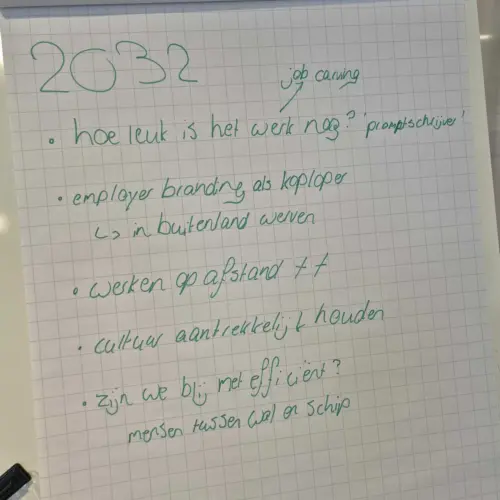 2032
job carving
• hoe leuk is het werk nog? 'promptschrijver'
• employer branding als koploper
↳ in buitenland werven
• werken op afstand ++
• cultuur aantrekkelijk houden
• zijn we blij met efficiënt?
mensen tussen wal en schip